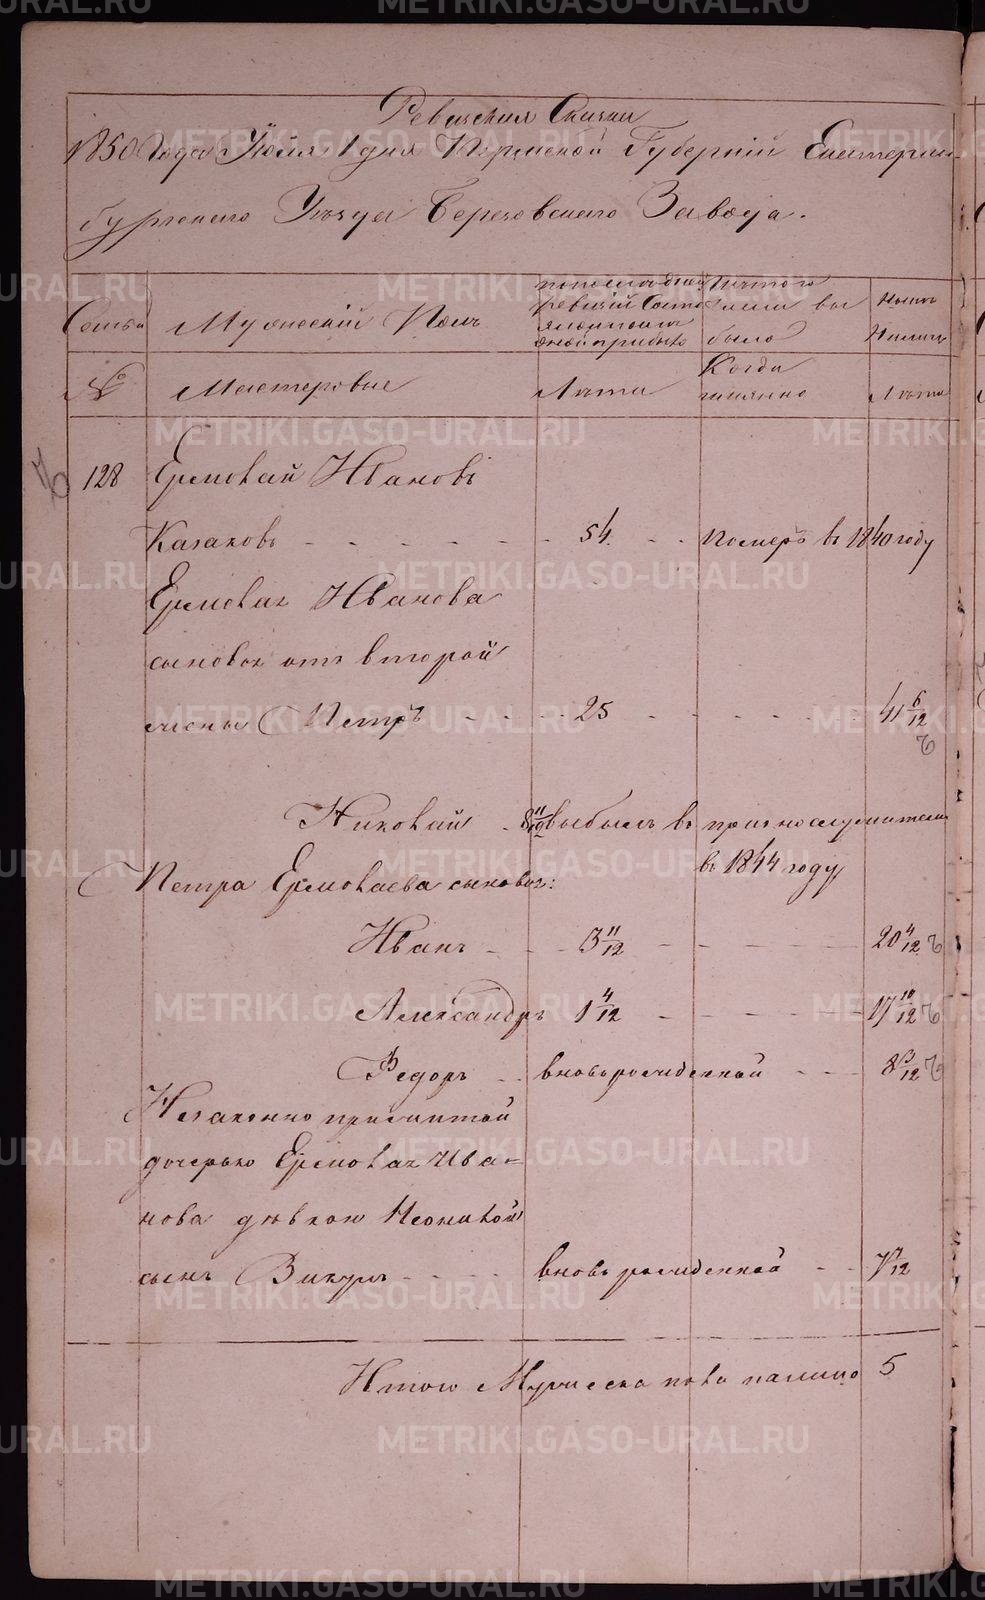 Ревизская Сказка
1850 Года Июля 1 дня Пермской Губернии Екатерин-
бургскаго Уезда Березовскаго Завода.
Семьи
Мужеский Полъ
по последней
ревизіи Состо
яло и после
оной прибыло
Изъ того
числа вы
было
Ныне
На лицо
№
Мастеровые
Лета
Когда
именно
Лета
128 Ермолай Ивановъ
Казаковъ - - - - - 54. - - померъ въ 1840 году
Ермолая Иванова
сыновья отъ второй
жены Петръ - - - - 25 - - - - - - 41 6/12
Николай - 8 11/12 выбылъ въ
въ 1844 году
Петра Ермолаева сыновья:
Иванъ - - - 3 11/12 - - - - - 20 4/12
Александръ 1 4/12 - - - - - 17 10/12
Федоръ - - вновьрожденной - - - 8 3/12
Незаконно прижитой
дочерью Ермолая Ива=
нова девкою
сынъ Викулъ - - - - вновь рожденной - - 7/12
Итого Мужеска пола налицо 5
METRIKI.GASO-URAL.RU